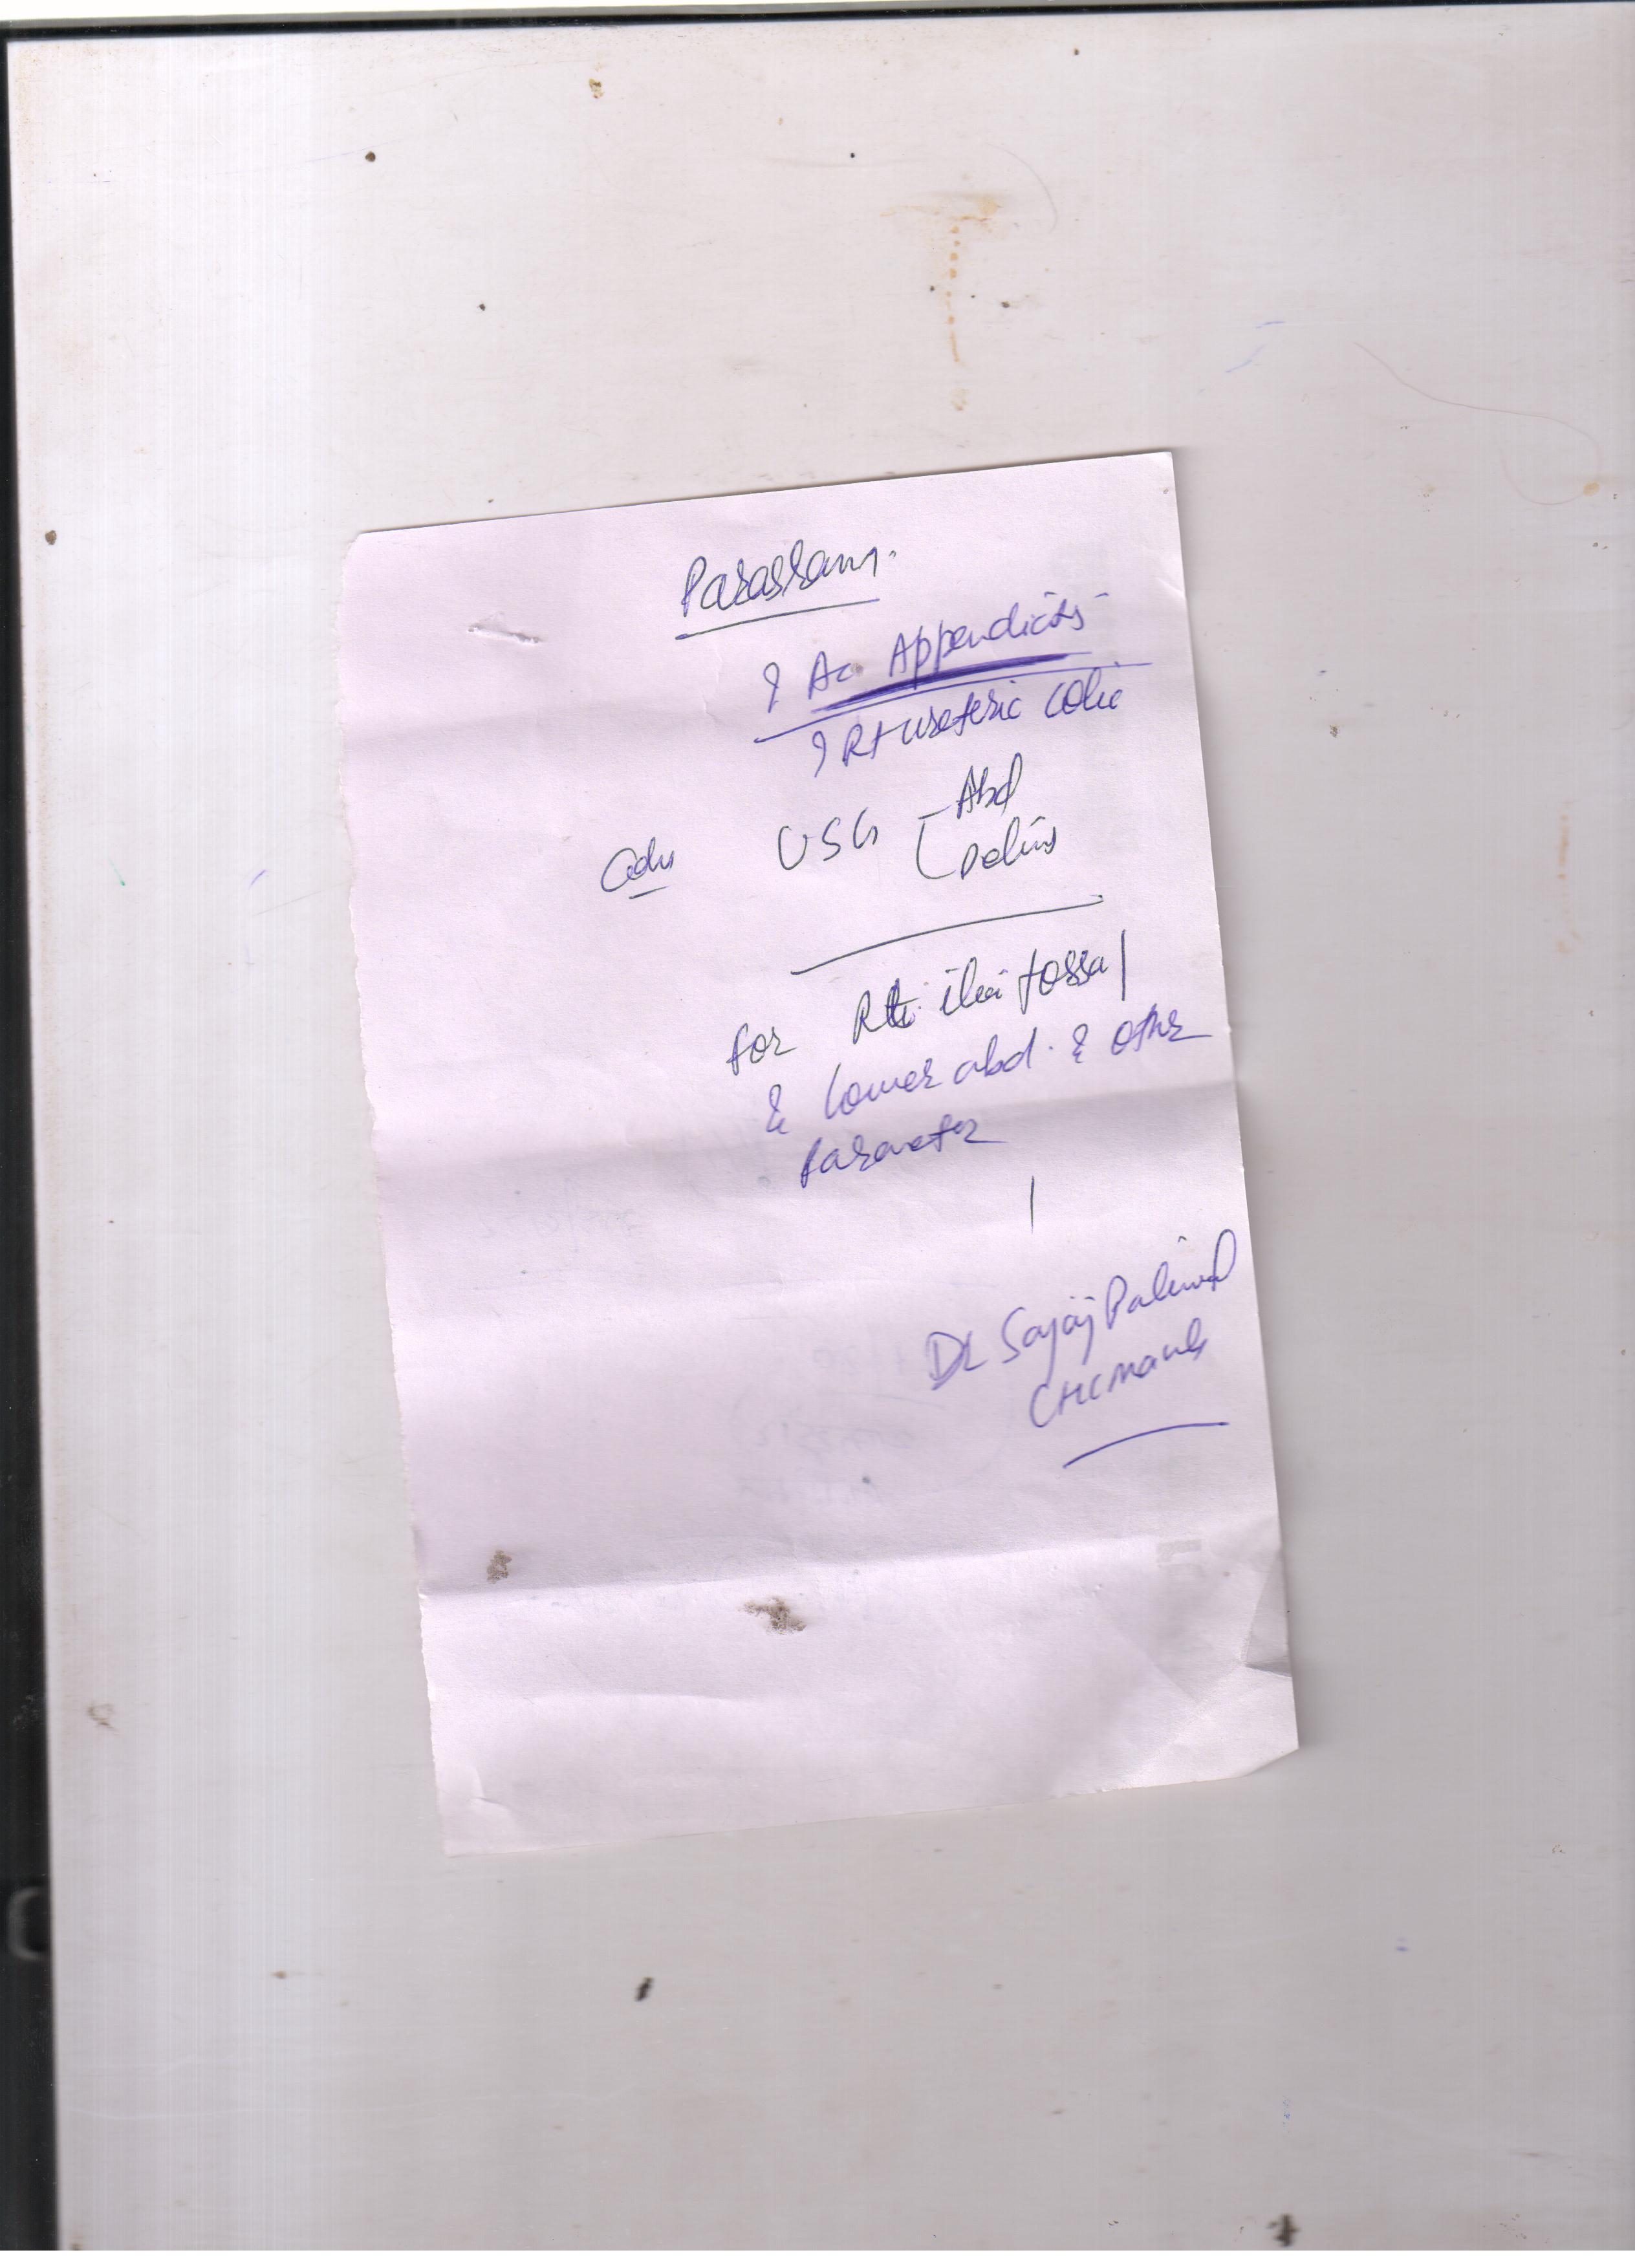 Parasram.
? Ac. Appendicitis
? Rt ureteric colic
Adv USG Abd
Pelvis
for Rt iliac fossa
& lower abd. & other
parameter
Dr Sanjay Paliwal
CHC